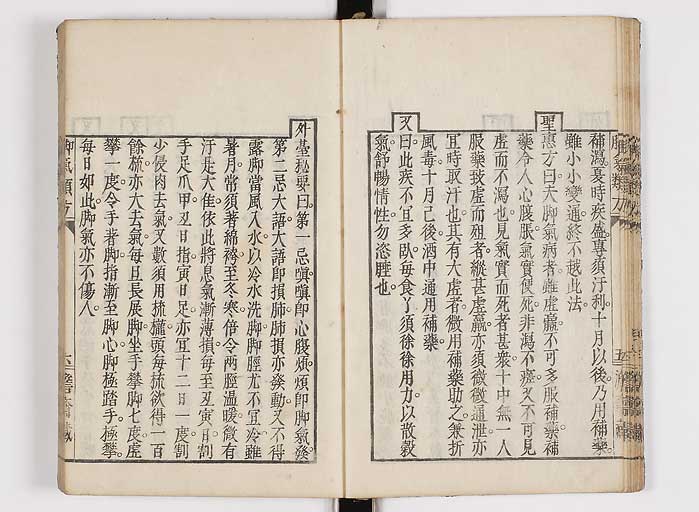 脚氣類方
補瀉。夏時疾盛。專須汗利。十月以後。乃用補藥。
雖小小變通。終不越此法。
聖惠方曰。夫脚氣病者。雖虛羸。不可多服補藥。補
藥令人心腹脹。氣實便死。非瀉不痊。又不可見
虛而不瀉也。見氣實而死者甚衆。十中無一人
服藥致虛而殂者。縱甚虛羸。亦須微微通泄。亦
宜時取汗也。其有大虛者。微用補藥助之。兼折
風毒。十月已後。酒中通用補藥。
又曰。此疾不宜多臥。每食了。須徐徐用力。以散穀
氣。舒暢情性。勿恣睡也。
外臺秘要曰。第一忌嗔。嗔即心腹煩。煩即脚氣發。
第二忌大語。大語即損肺。肺損亦發動。又不得
露脚當風入水。以冷水洗脚。脚脛尤不宜冷。雖
暑月常須著綿袴。至冬寒倍令兩脛溫暖。微有
汗是大佳。依此將息。氣漸薄損。每至丑寅日。割
手足爪甲。丑日指。寅日足。亦宜十二日一度割。
少侵肉去氣。又數須用梳攏頭。每梳欲得一百
餘梳。亦大去氣。每旦長展脚坐。手攀脚七度。虛
攀一度。令手著脚指。漸至脚心。脚極踏手。極攀。
每日如此。脚氣亦不傷人。
脚氣類方